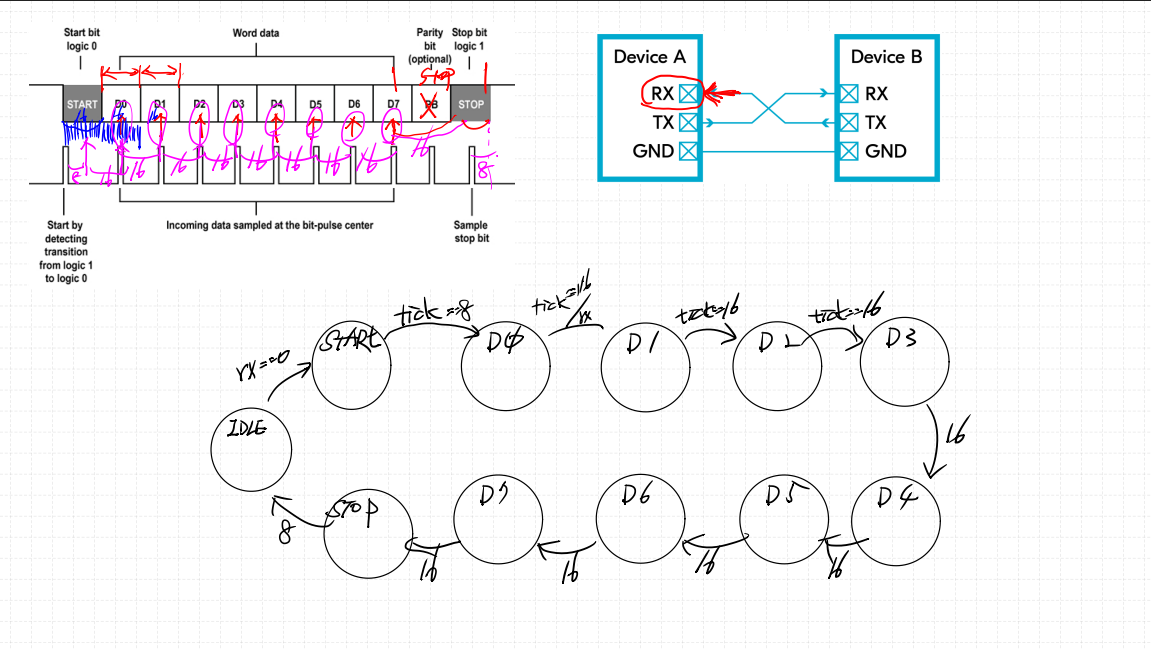 Start bit
logic 0
Word data
Parity
bit
(optional)
Stop bit
logic 1
STOP
START D0 D1 D2 D3 D4 D5 D6 D7 PB STOP
16 16
8 16 16 16 16 16 16 16 16 16 8
Start by
detecting
transition
from logic 1
to logic 0
Incoming data sampled at the bit-pulse center
Sample
stop bit
Device A Device B
RX RX
TX TX
GND GND
rx==0
tick==8
tick=16
/rx
tick=16
tick==16
IDLE
START
D0
D1
D2
D3
16
D4
16
D5
16
D6
16
D7
16
STOP
8